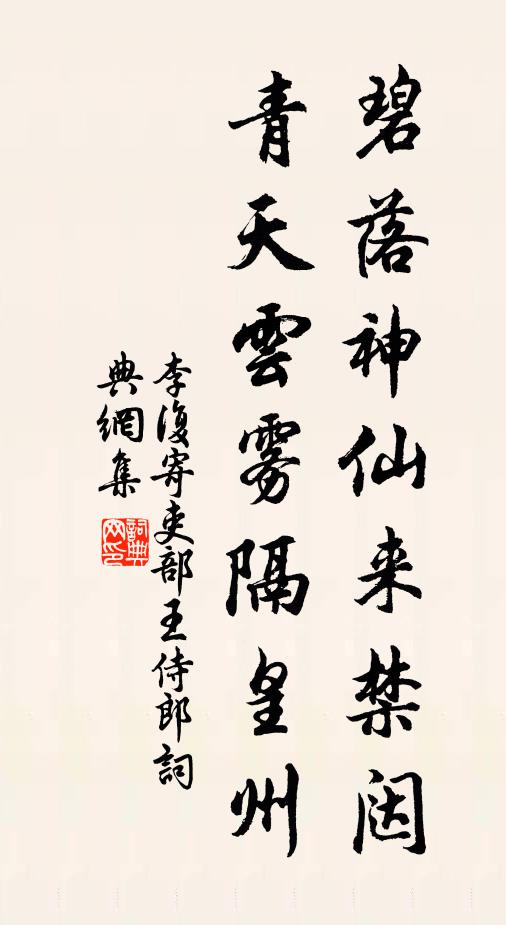 碧落神仙来禁闼
青天雲雾隔皇州
李復寄吏部王侍郎詞
典網集
詞典
网印